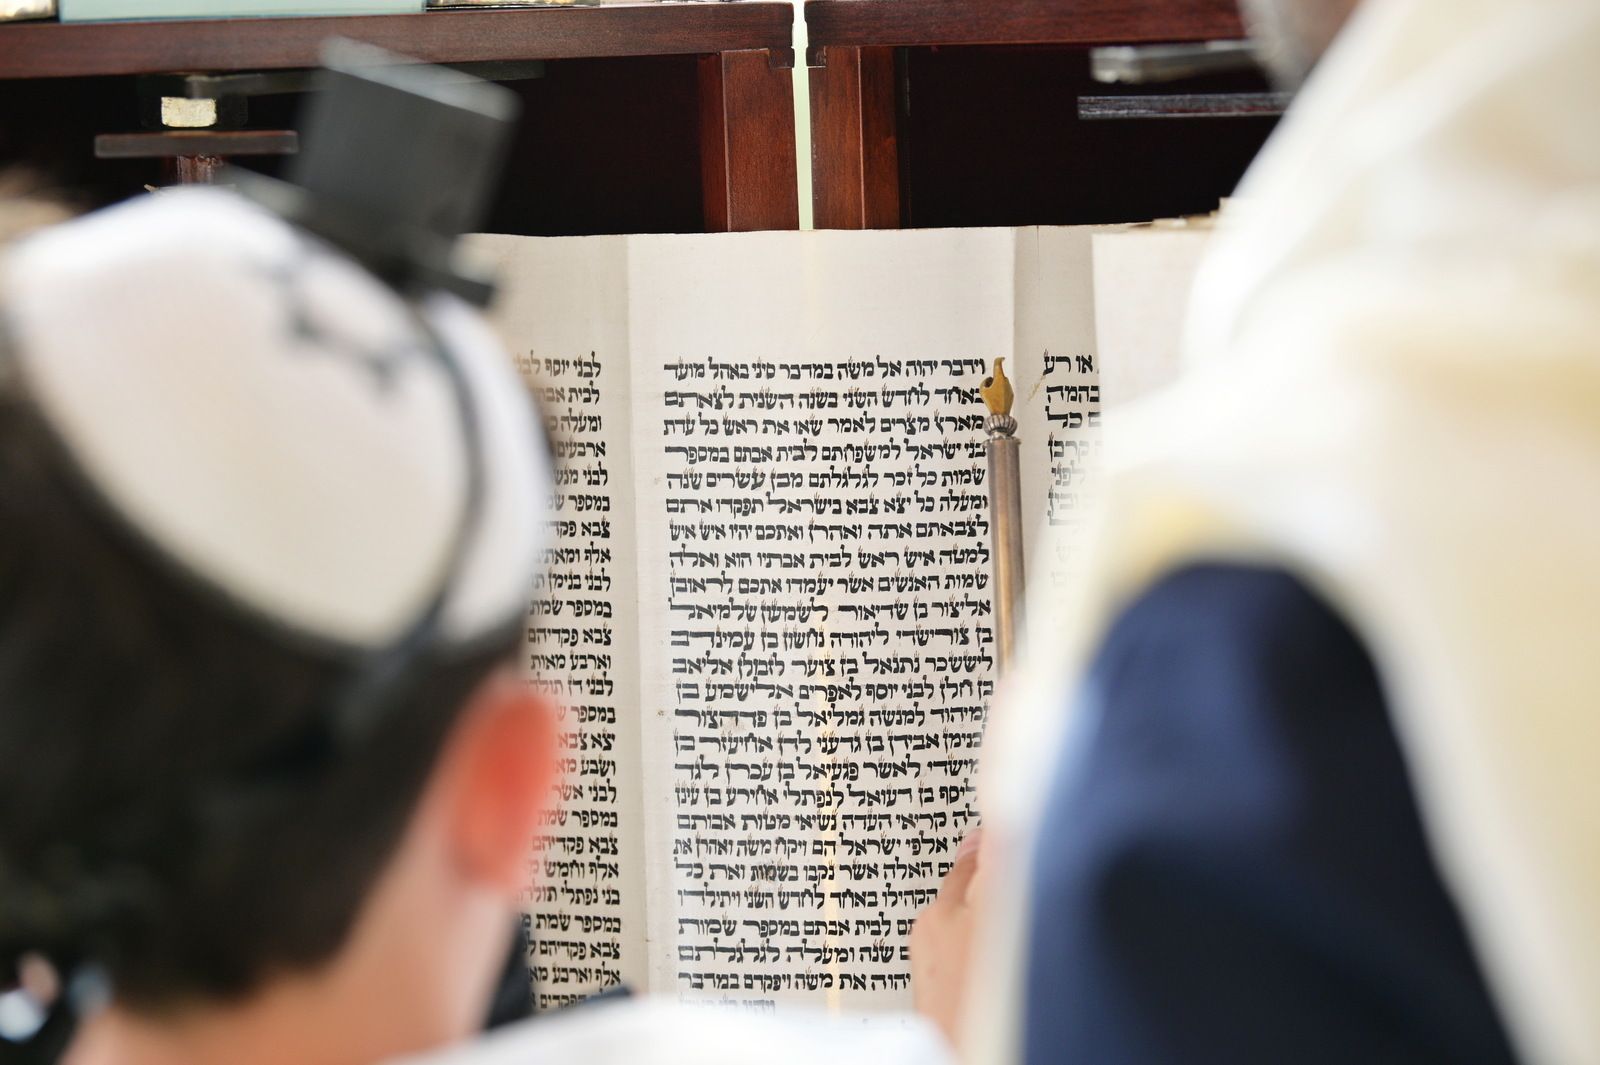 או רע
בהמה
כל
וידבר יהוה אל משה במדבר סיני באהל מועד
באחד לחדש השני בשנה השנית לצאתם
מארץ מצרים לאמר שאו את ראש כל עדת
בני ישראל למשפחתם לבית אבתם במספר
שמות כל זכר לגלגלתם מבן עשרים שנה
ומעלה כל יצא צבא בישראל תפקדו אתם
לצבאתם אתה ואהרן ואתכם יהיו איש איש
למטה איש ראש לבית אבתיו הוא ואלה
שמות האנשים אשר יעמדו אתכם לראובן
אליצור בן שדיאור לשמעון שלמיאל
בן צורישדי ליהודה נחשון בן עמינדב
ליששכר נתנאל בן צוער לזבולן אליאב
בן חלן לבני יוסף לאפרים אלישמע בן
עמיהוד למנשה גמליאל בן פדהצור
בנימן אבידן בן גדעני לדן אחיעזר בן
מישדי לאשר פגעיאל בן עכרן לגד
ליסף בן דעואל לנפתלי אחירע בן עינן
קריאי העדה נשיאי מטות אבותם
אלפי ישראל הם ויקח משה ואהרן את
האלה אשר נקבו בשמות ואת כל
הקהילו באחד לחדש השני ויתילדו
לבית אבתם במספר שמות
שנה ומעלה לגלגלתם
יהוה את משה ויפקדם במדבר
לבני יוסף לבני
לבית
ומעלה
ארבעים
לבני
במספר
צבא
אלף ומאתים
לבני בנימן
במספר שמת
צבא פקדיהם
וארבע מאות
לבני דן תולדתם
במספר
יצא צבא
ושבע
לבני אשר
במספר שמת
צבא פקדיהם
אלף וחמש
בני נפתלי
במספר שמת
צבא פקדיהם
אלף וארבע
הפקדים